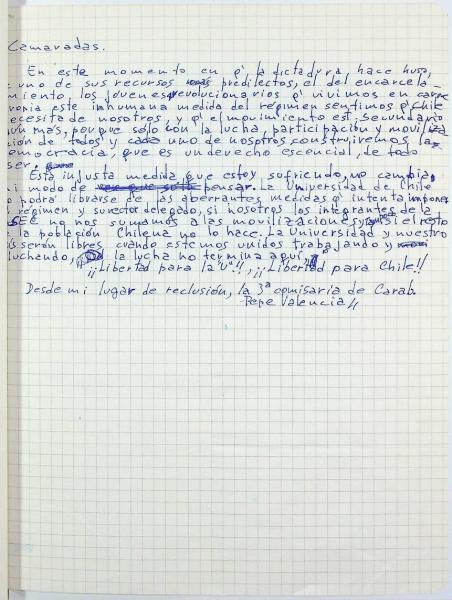 Camaradas.
En este momento en q' la dictadura, hace huso,
uno de sus recursos predilectos, el del encarcela-
miento, los jóvenes revolucionarios q' vivimos en carne
ropia este inhumana medida del régimen sentimos q' Chile
ecesita de nosotros, y q' el movimiento est. Secundario
ún más, porque solo con la lucha, participación y moviliza
ción de todos y cada uno de nosotros construiremos la
emocracia, que es un derecho escencial, de todo
ser.
Esta injusta medida que estoy sufriendo, no cambia,
i modo de pensar. La Universidad de Chile
o podrá librarse de las aberrantes medidas q' intenta imponer
régimen y su rector delegado, si nosotros los integrantes de la
SEC no nos sumamos a las movilizaciones, y si el resto
la población Chilena no lo hace. La Universidad y nuestro
ís serán libres cuando estemos unidos trabajando y
luchando, la lucha no termina aquí,
¡¡Libertad para la "U"!!, ¡¡Libertad para Chile!!
Desde mi lugar de reclusión, la 3ª comisaría de Carab.
-Pepe Valencia//